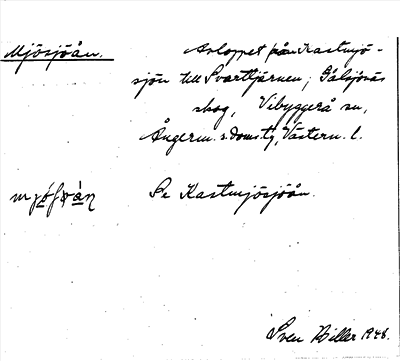 Mjösjöån.
Avloppet från Kastmjö-
sjön till Svarttjärnen; Gålsjönäs
skog, Vibyggerå sn,
Ångerm. s. doms:tg, Västern. l.
Se Kastmjösjöån.
Sven Biller 1948.